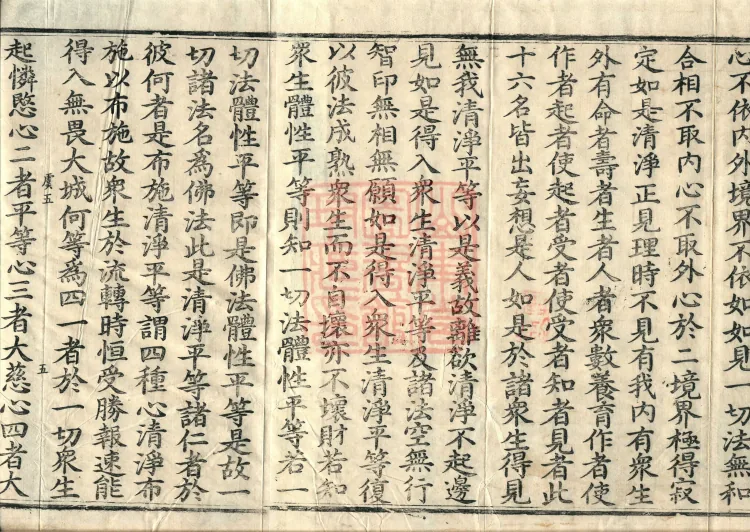 心不依内外境界不依如如見一切法無和
合相不取内心不取外心於二境界極得寂
定如是清淨正見理時不見有我内有衆生
外有命者壽者生者人者衆數養育作者使
作者起者使起者受者使受者知者見者此
十六名皆出妄想是人如是於諸衆生得見
無我清淨平等以是義故離欲清淨不起邊
見如是得入衆生清淨平等及諸法空無行
智印無相無願如是得入衆生清淨平等復
以彼法成熟衆生而不自壞亦不壞財若知
衆生體性平等則知一切法體性平等若一
切法體性平等即是佛法體性平等是故一
切諸法名為佛法此是清淨平等諸仁者於
彼何者是布施清淨平等謂四種心清淨布
施以布施故衆生於流轉時恒受勝報速能
得入無畏大城何等為四一者於一切衆生
虞五 五
起憐愍心二者平等心三者大慈心四者大